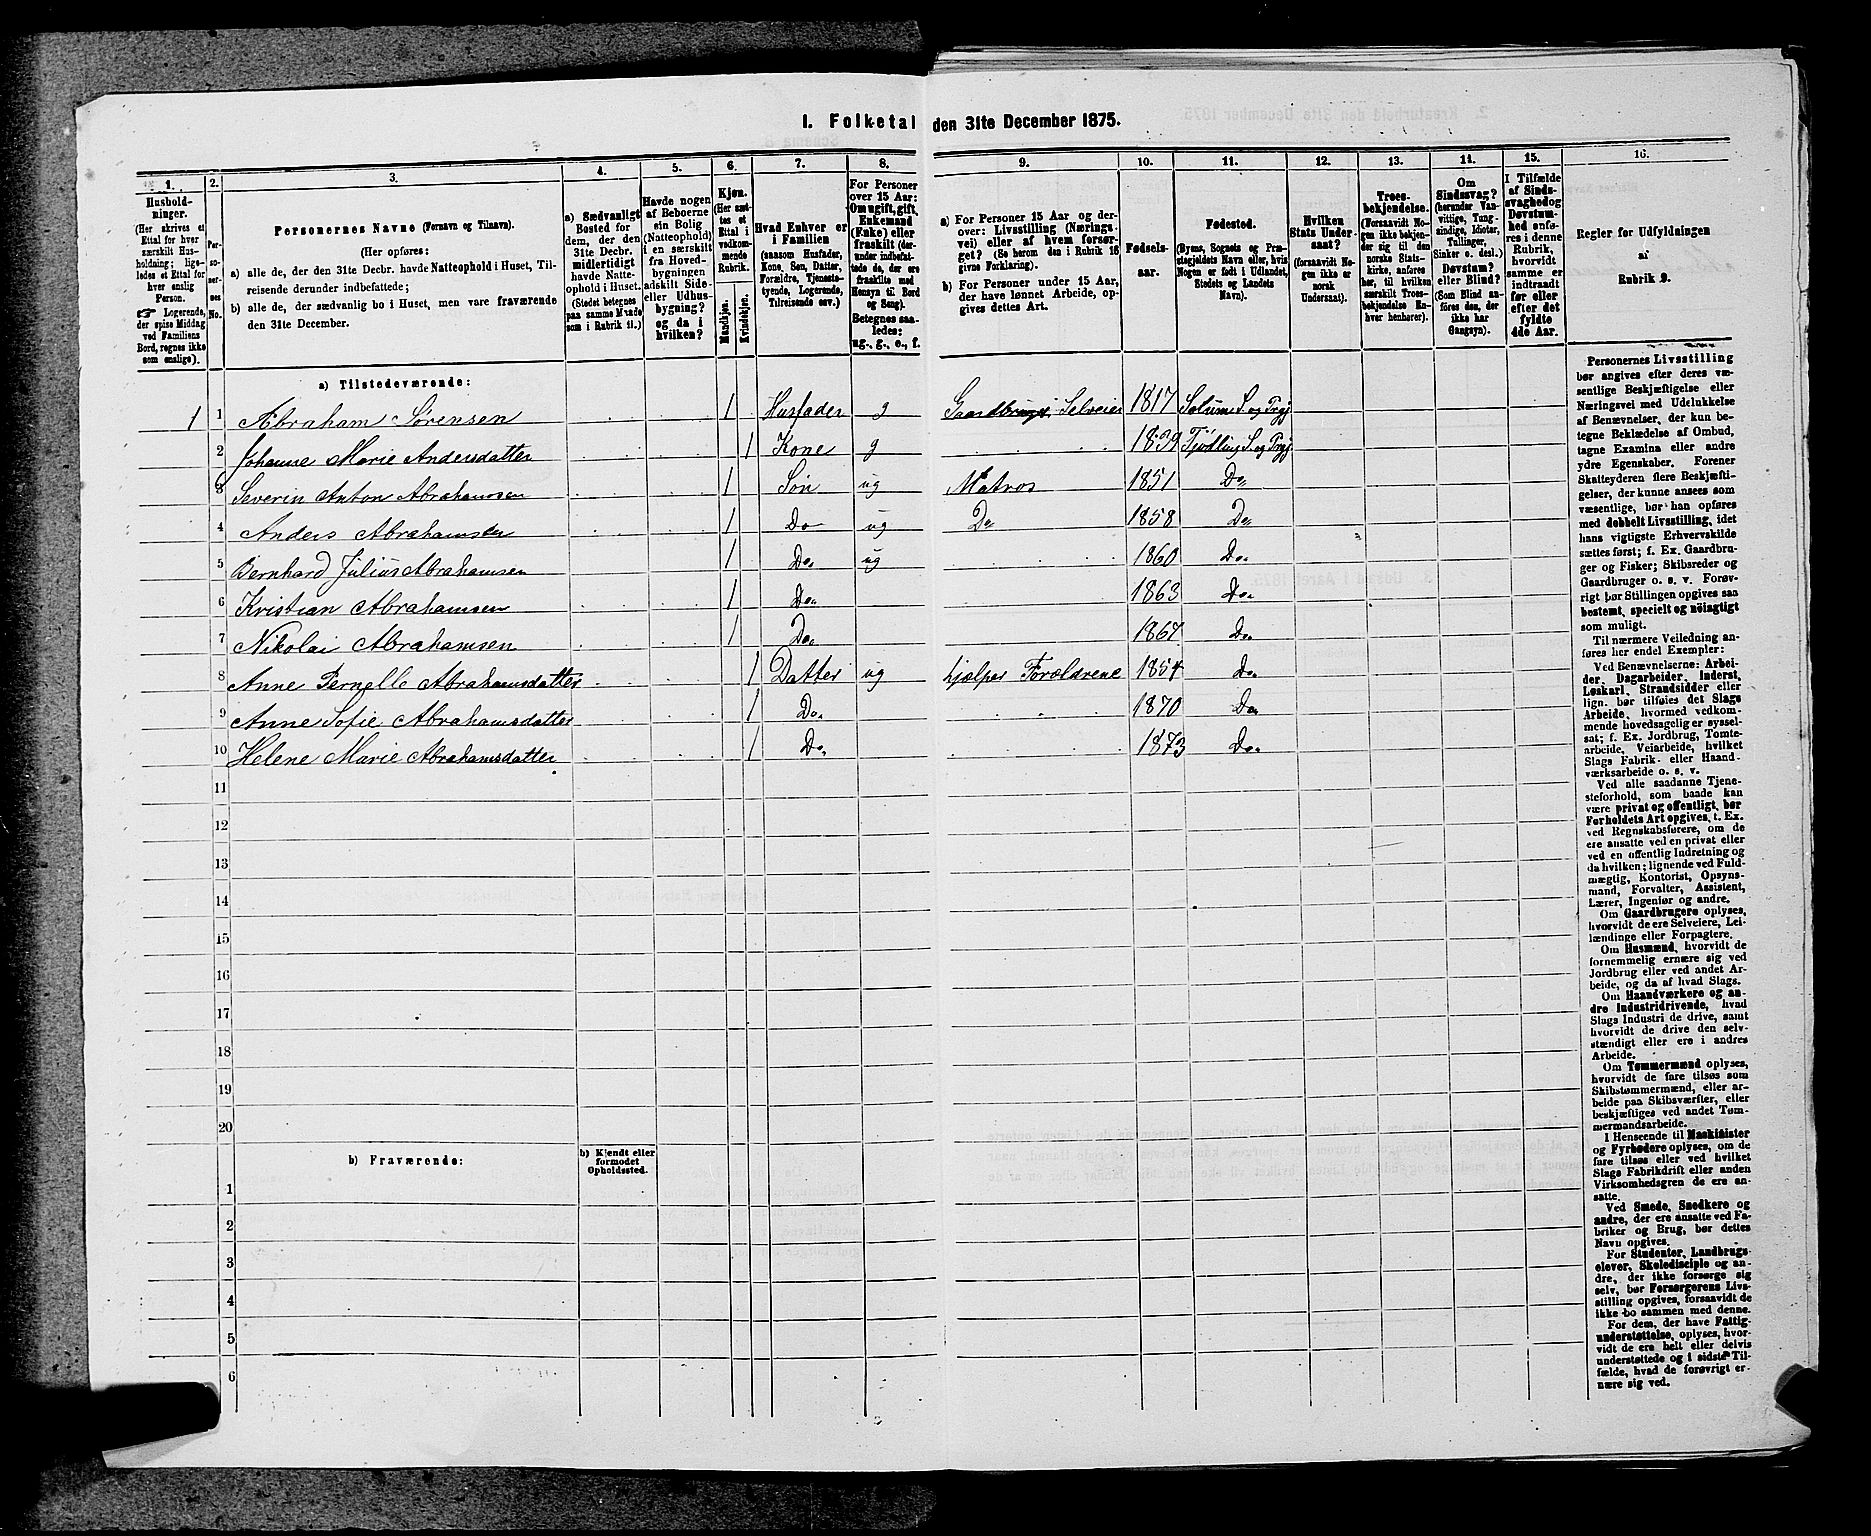 1. Folketal den 31te December 1875.
1. 2. 3. 4. 5. 6. 7. 8. 9. 10. 11. 12. 13. 14. 15. 16.
Hushold-
ninger.
(Her skrives et
Ettal for hver
særskilt Hus-
holdning; lige-
ledes et Ettal for
hver enslig
Person.
☞ Logerende,
der spise Middag
ved Familiens
Bord, regnes ikke
som enslige).
Per-
soner-
nes
No.
Personernes Navne (Fornavn og Tilnavn).
(Her opføres:
a) alle de, der den 31te Decbr. havde Natteophold i Huset, Til-
reisende derunder indbefattede;
b) alle de, der sædvanlig bo i Huset, men vare fraværende
den 31te December.
a) Sædvanligt
Bosted for
dem, der den
31te Decbr.
midlertidigt
havde Natte-
ophold i Huset.
(Stedet betegnes
paa samme Maade
som i Rubrik 11.)
Havde nogen
af Beboerne
sin Bolig
(Natteophold)
i en særskilt
fra Hoved-
bygningen
adskilt Side-
eller Udhus-
bygning?
og da i
hvilken?
Kjøn.
(Her sæt-
tes et
Ettal i
vedkom-
mende
Rubrik.
Mandkjøn.
Kvindekjøn.
Hvad Enhver er
i Familien
(saasom Husfader,
Kone, Søn, Datter,
Forældre, Tjeneste-
tyende, Logerende,
Tilreisende osv.)
For Personer
over 15 Aar:
Om ugift, gift,
Enkemand
(Enke) eller
fraskilt (der-
under indbefat-
tede de, der ere
fraskilte med
Hensyn til Bord
og Seng).
Betegnes saa-
ledes:
ug., g., e., f.
a) For Personer 15 Aar og der-
over: Livsstilling (Nærings-
vei) eller af hvem forsør-
get? (Se herom den i Rubrik 16
givne Forklaring).
b) For Personer under 15 Aar,
der have lønnet Arbeide, op-
gives dettes Art.
Fødsels-
aar.
Fødested.
(Byens, Sognets og Præ-
stegjeldets Navn eller, hvis
Nogen er født i Udlandet,
Stedets og Landets
Navn).
Hvilken
Stats Under-
saat?
(forsaavidt No-
gen ikke er
norsk
Undersaat).
Troes-
bekjendelse.
(Forsaavidt No-
gen ikke bekjen-
der sig til den
norske Stats-
kirke, anføres
her, til hvilken
særskilt Troes-
bekjendelse En-
hver henhører).
Om
Sindssvag?
(herunder Van-
vittige, Tung-
sindige, Idioter,
Tullinger,
Sinker o. desl.)
Døvstum?
eller Blind?
(Som Blind an-
føres den, der
ikke har
Gangsyn).
I Tilfælde
af Sinds-
svaghed og
Døvstum-
hed anfø-
res i denne
Rubrik,
hvorvidt
samme er
indtraadt
før eller
efter det
fyldte
4de Aar.
Regler for Udfyldningen
af
Rubrik 9.
a) Tilstedeværende:
1 1 Abraham Sørensen 1 Husfader g Gaardbruger Selveier 1817 Solum S. og Prgj
2 Johanne Marie Andersdatter 1 Kone g 1829 Tjødling S. og Prgj
3 Severin Anton Abrahamssen 1 Søn ug Matros 1851 Do
4 Anders Abrahamsen 1 Do ug Do 1858 Do
5 Bernhard Julius Abrahamsen 1 Do ug 1860 Do
6 Kristian Abrahamsen 1 Do 1863 Do
7 Nikolai Abrahamsen 1 Do 1867 Do
8 Anne Pernelle Abrahamsdatter 1 Datter ug hjælper Forældrene 1854 Do
9 Anne Sofie Abrahamsdatter 1 Do 1870 Do
10 Helene Marie Abrahamsdatter 1 Do 1873 Do
11
12
13
14
15
16
17
18
19
20
b) Fraværende:
b) Kjendt eller
formodet
Opholdssted.
1
2
3
4
5
6
Personernes Livsstilling
bør angives efter deres væ-
sentlige Beskjæftigelse eller
Næringsvei med Udelukkelse
af Benævnelser, der kun be-
tegne Beklædelse af Ombud,
tagne Examina eller andre
ydre Egenskaber. Forener
Skatteyderen flere Beskjæfti-
gelser, der kunne ansees som
væsentlige, bør han opføres
med dobbelt Livsstilling, idet
hans vigtigste Erhvervskilde
sættes først; f. Ex. Gaardbru-
ger og Fisker; Skibsreder og
Gaardbruger o. s. v. Forøv-
rigt bør Stillingen opgives saa
bestemt, specielt og nöiagtigt
som muligt.
Til nærmere Veiledning an-
føres her endel Exempler:
Ved Benævnelserne: Arbei-
der, Dagarbeider, Inderst,
Løskarl, Strandsidder eller
lign. bør tilføies det Slags
Arbeide, hvormed vedkom-
mende hovedsagelig er syssel-
sat; f. Ex. Jordbrug, Tomte-
arbeide, Veiarbeide, hvilket
Slags Fabrik- eller Haand-
værksarbeide o. s. v.
Ved alle saadanne Tjene-
steforhold, som baade kan
være privat og offentligt, bør
Forholdets Art opgives, t. Ex.
ved Regnskabsførere, om de
ere ansatte ved en privat eller
ved en offentlig Indretning og
da hvilken; lignende ved Fuld-
mægtig, Kontorist, Opsyns-
mand, Forvalter, Assistent,
Lærer, Ingeniør og andre.
Om Gaardbrugere oplyses,
hvorvidt de ere Selveiere, Lei-
lændinge eller Forpagtere.
Om Husmænd, hvorvidt de
fornemmelig ernære sig ved
Jordbrug eller ved andet Ar-
beide, og da af hvad Slags.
Om Haandværkere og an-
dre Industridrivende, hvad
Slags Industri de drive, samt
hvorvidt de drive den selv-
stændigt eller ere i andres
Arbeide.
Om Tømmermænd oplyses,
hvorvidt de fare tilsøs som
Skibstømmermænd, eller ar-
beide paa Skibsværfter, eller
beskjæftiges ved andet Tøm-
mermandsarbeide.
I Henseende til Maskinister
og Fyrbødere oplyses, om de
fare tilsøs eller ved hvilket
Slags Fabrikdrift eller anden
Virksomhedsgren de ere an-
satte.
Ved Smede, Snedkere og
andre, der ere ansatte ved Fa-
briker og Brug, bør dettes
Navn opgives.
For Studenter, Landbrugs-
elever, Skoledisciple og an-
dre, der ikke forsørge sig
selv, bør Forsørgerens Livs-
stilling opgives, forsaavidt de
ikke bo sammen med denne.
For dem, der have Fattig-
understøttelse, oplyses, hvor-
vidt de ere helt eller delvis
understøttede og i sidste Til-
fælde, hvad de forøvrigt er-
nære sig ved.